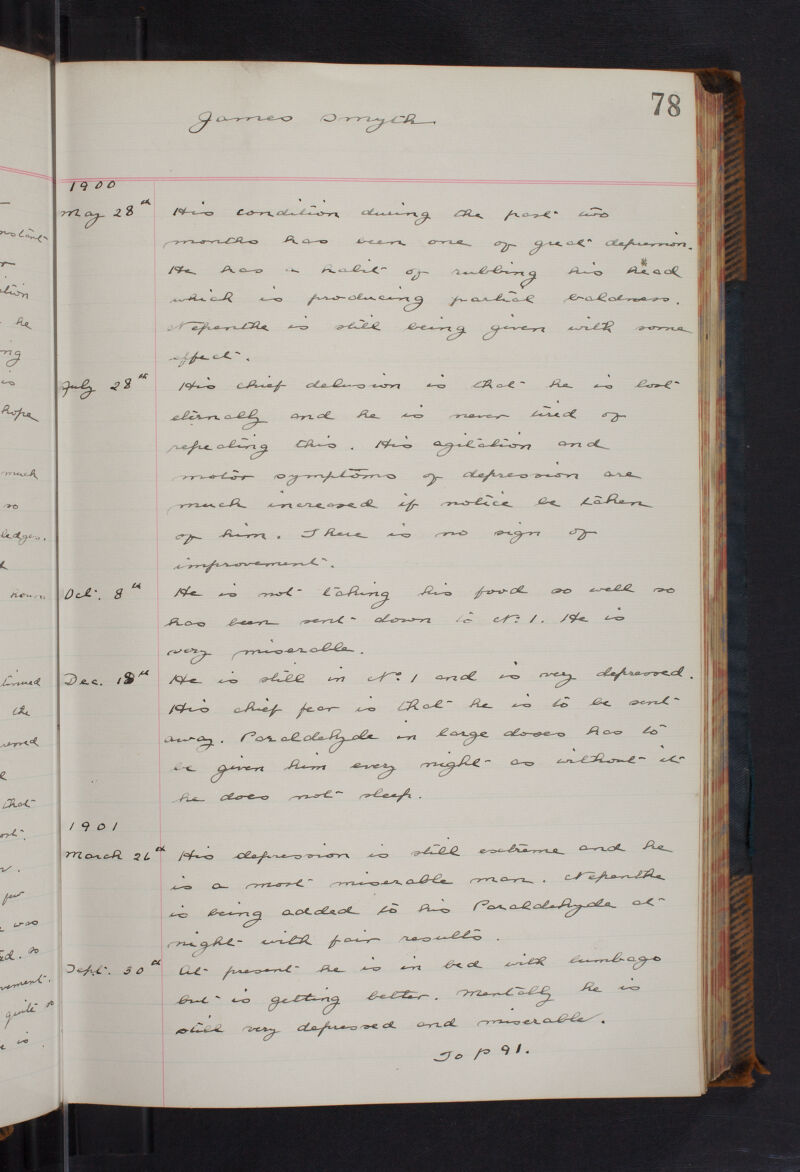 78
James Smyth
1900
May 28th His condition during the past two
months has been one of great depression.
He has a habit of rubbing his head
which is producing partial baldness.
Nepenthe is still being given with some
effect.
July 28th His chief delusion is that he is lost
eternally and he is never tired of
repeating this. His agitation and
motor symptoms of depression are
much increased if notice be taken
of him. There is no sign of
improvement.
Oct. 8th He is not taking his food so well so
has been sent down to No. 1. He is
very miserable.
Dec. 18th He is still in No. 1 and is very depressed.
His chief fear is that he is to be sent
away. Paraldehyde in large doses has to
be given him every night as without it
he does not sleep.
1901
March 26th His depression is still extreme and he
is a most miserable man. Nepenthe
is being added to his Paraldehyde at
night with fair results.
Sept. 30th At present he is in bed with lumbago
but is getting better. Mentally he is
still very depressed and miserable.
To p 91.